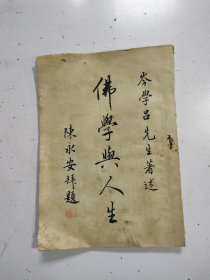 岑學呂先生著述
佛學與人生
陳永安拜題